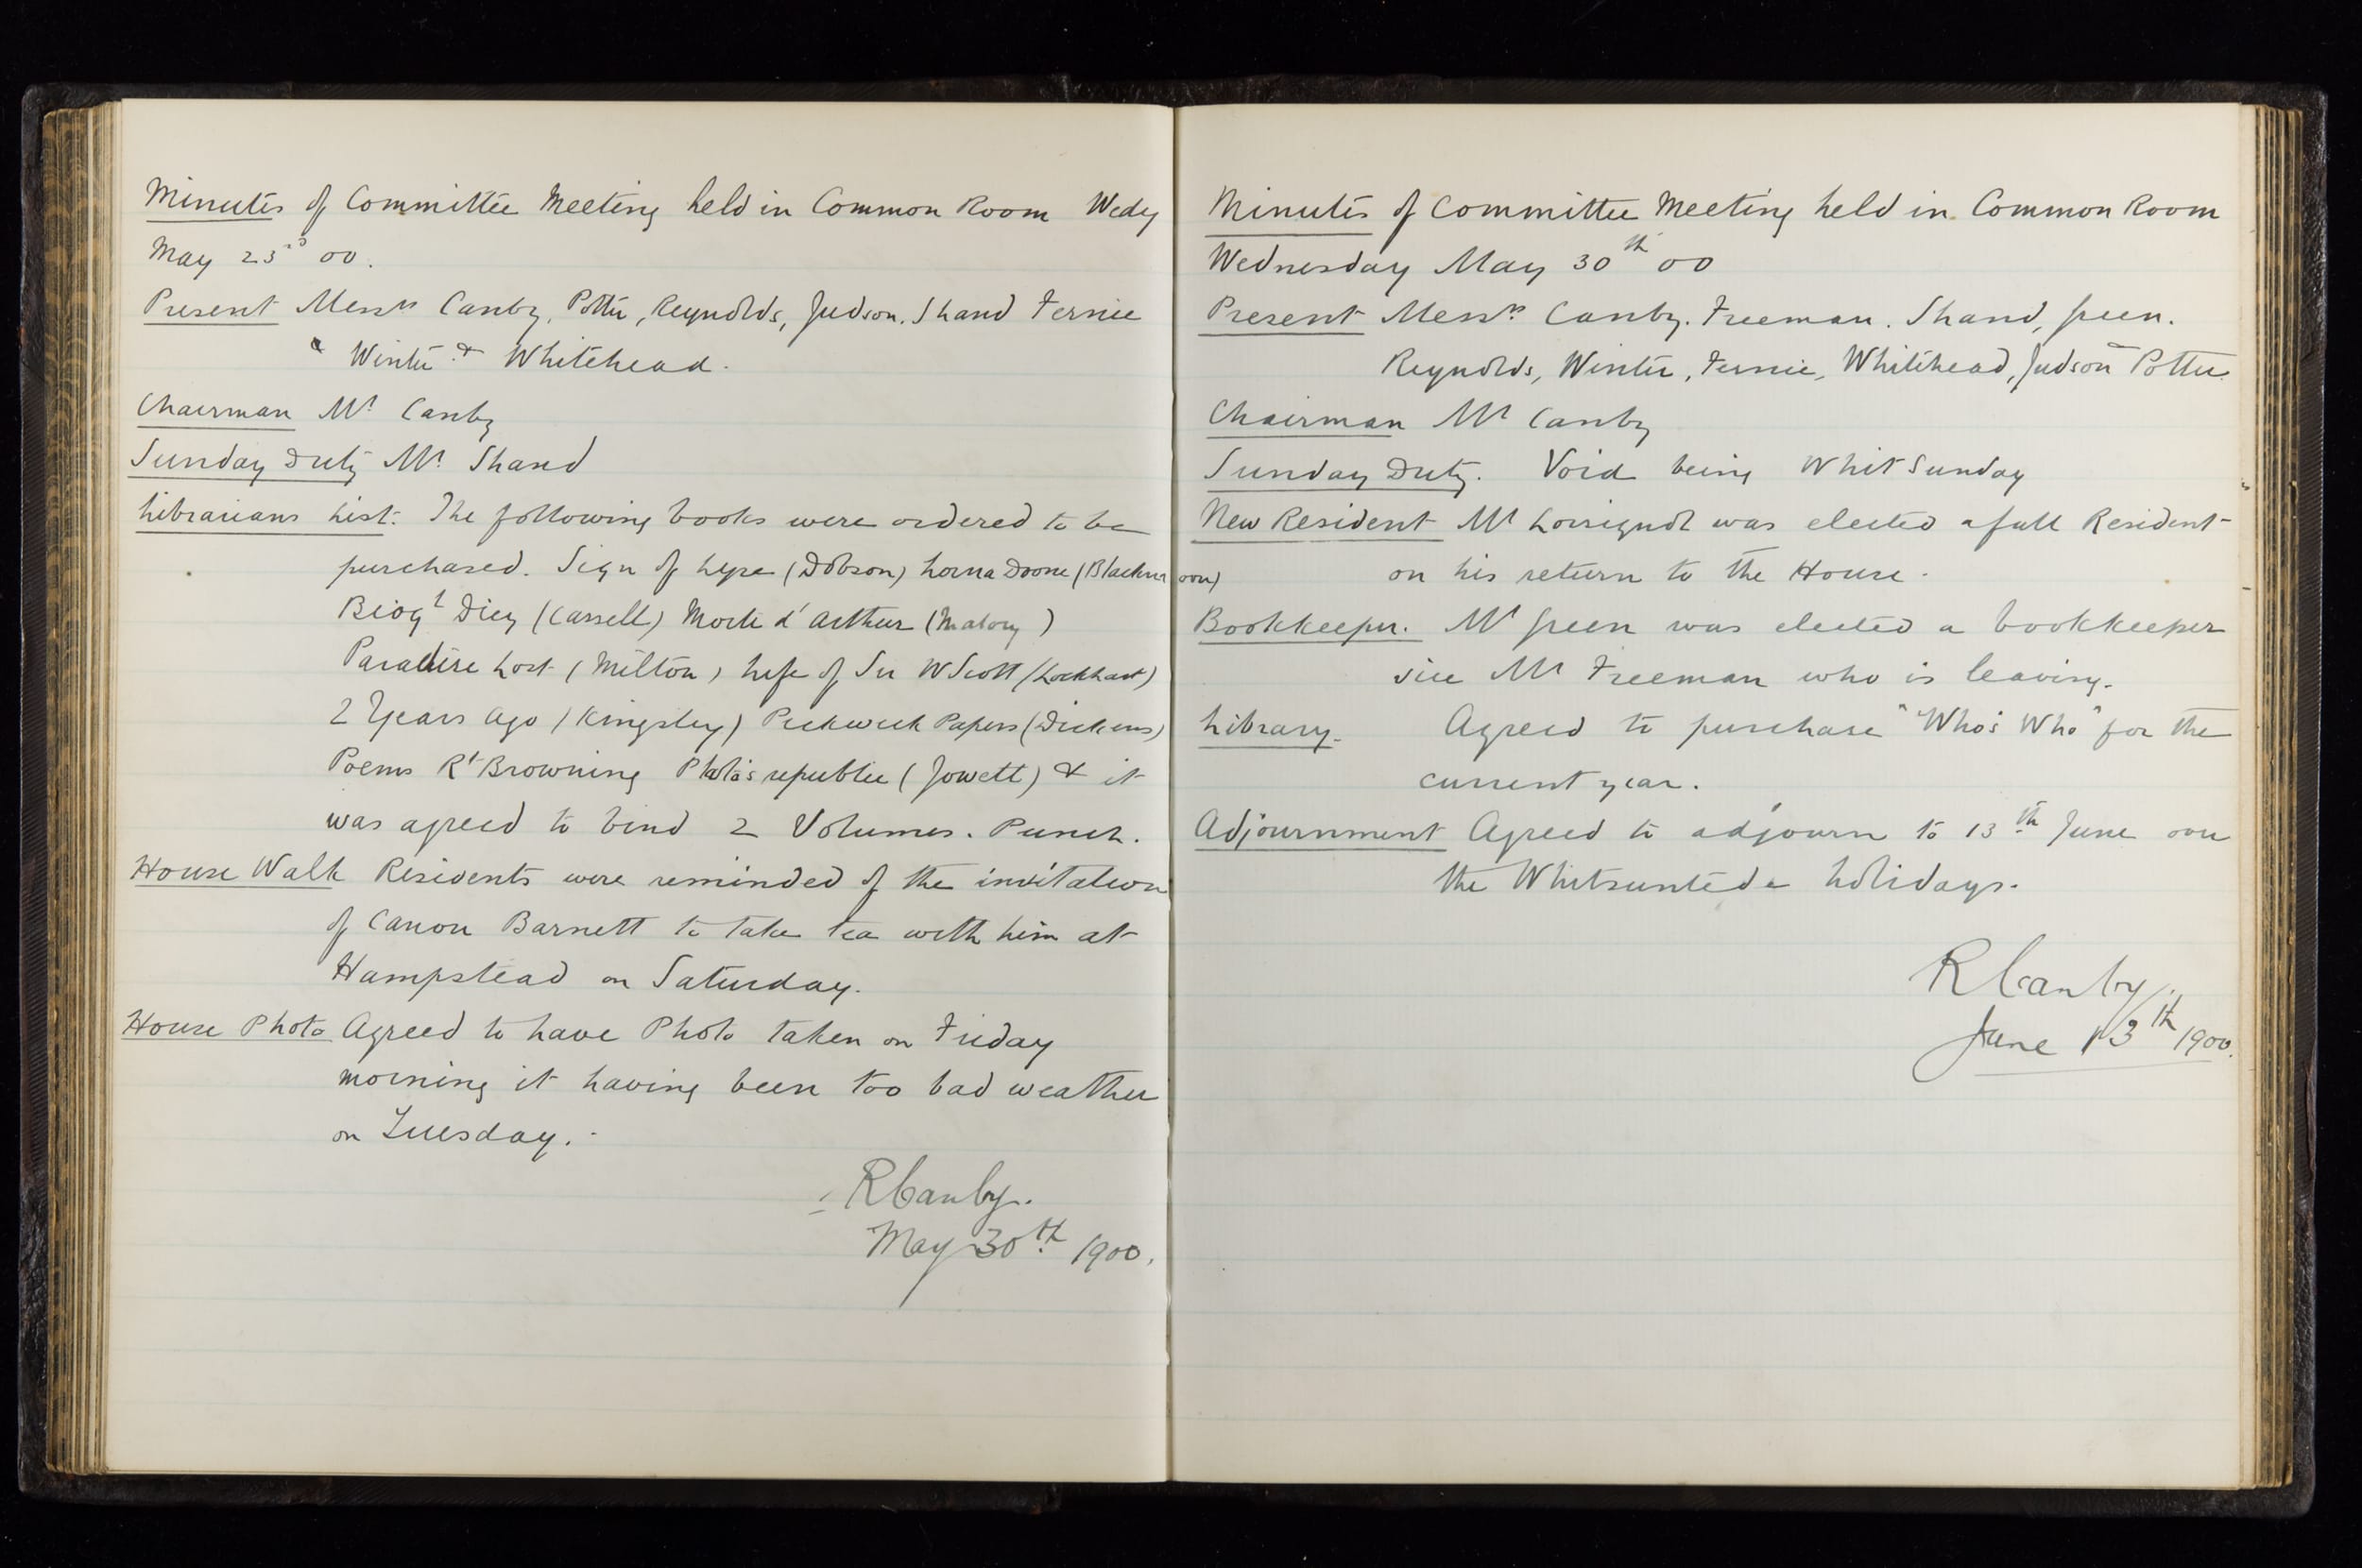 Minutes of Committee Meeting held in Common Room Wedy
May 23rd 00.
Present Messrs Canby, Potter, Reynolds, Judson. Shand Fernie
Winter & Whitehead.
Chairman Mr Canby
Sunday Duty Mr. Shand
Librarians List. The following books were ordered to be
purchased. Sign of Lyre (Dobson) Lorna Doone (Blackmoor)
Biogl Dicy (Cassell) Morte d'Arthur (Malory)
Paradise Lost (Milton) Life of Sir W Scott (Lockhart)
2 Years Ago (Kingsley) Pickwick Papers (Dickens)
Poems Rt Browning Plato's republic (Jowett) & it
was agreed to bind 2 Volumes. Punch.
House Walk Residents were reminded of the invitation
of Canon Barnett to take tea with him at
Hampstead on Saturday.
House Photo Agreed to have Photo taken on Friday
morning it having been too bad weather
on Tuesday.
RCanby.
May 30th 1900.
Minutes of Committee Meeting held in Common Room
Wednesday May 30th 00
Present Messrs Canby. Freeman. Shand, Green.
Reynolds, Winter, Fernie, Whitehead, Judson Potter.
Chairman Mr Canby
Sunday Duty. Void being Whit Sunday
New Resident Mr was elected a full Resident
on his return to the House.
Bookkeeper. Mr Green was elected a bookkeeper
vice Mr Freeman who is leaving.
Library. Agreed to purchase "Who's Who" for the
current year.
Adjournment Agreed to adjourn to 13th June over
the Whitsuntide holidays.
RCanby.
June 13th 1900.